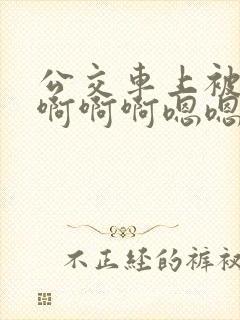 公交车上被
啊啊啊嗯嗯
不正经的裤衩